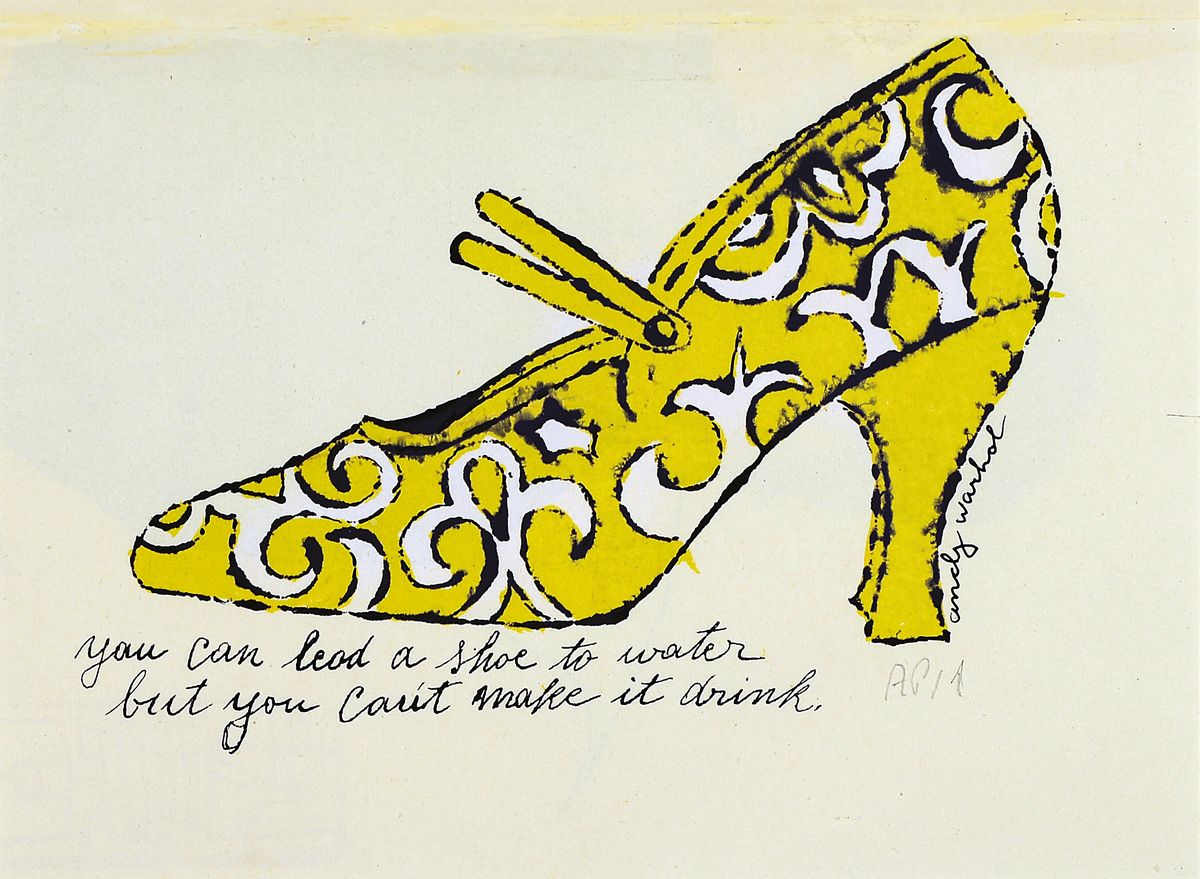 you can lead a shoe to water
but you can't make it drink.
andy warhol
AP/1